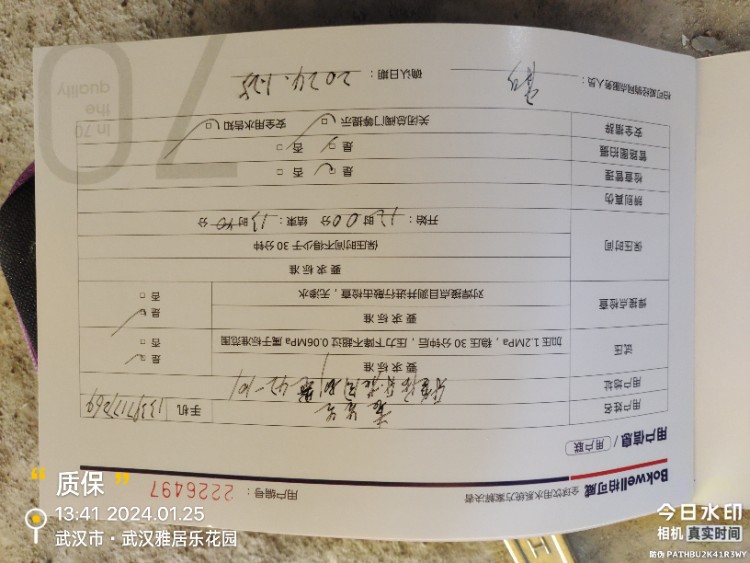 Bokwell柏可威 全球饮用水系统方案解决者 用户编号：2226497
用户信息 / 用户联
用户姓名 手机
用户地址
试压 要求标准 是
加压1.2MPa，稳压30分钟后，压力下降不超过0.06MPa属于标准范围 否
焊接点检查 要求标准 是
对焊接点目测并进行敲击检查，无渗水 否
保压时间 要求标准
保压时间不得少于30分钟
开始：12时00分 结束：13时40分
辨别真伪
检查管理 是 否
管路图拍摄 是 否
安全措辞 关闭总阀门等提示 安全用水告知
柏可威经销网点服务人员： 确认日期：2024.1.25
In 70
the
quality
70
质保
13:41 2024.01.25
武汉市·武汉雅居乐花园
今日水印
相机 真实时间
防伪 PATHBU2K41R3WY